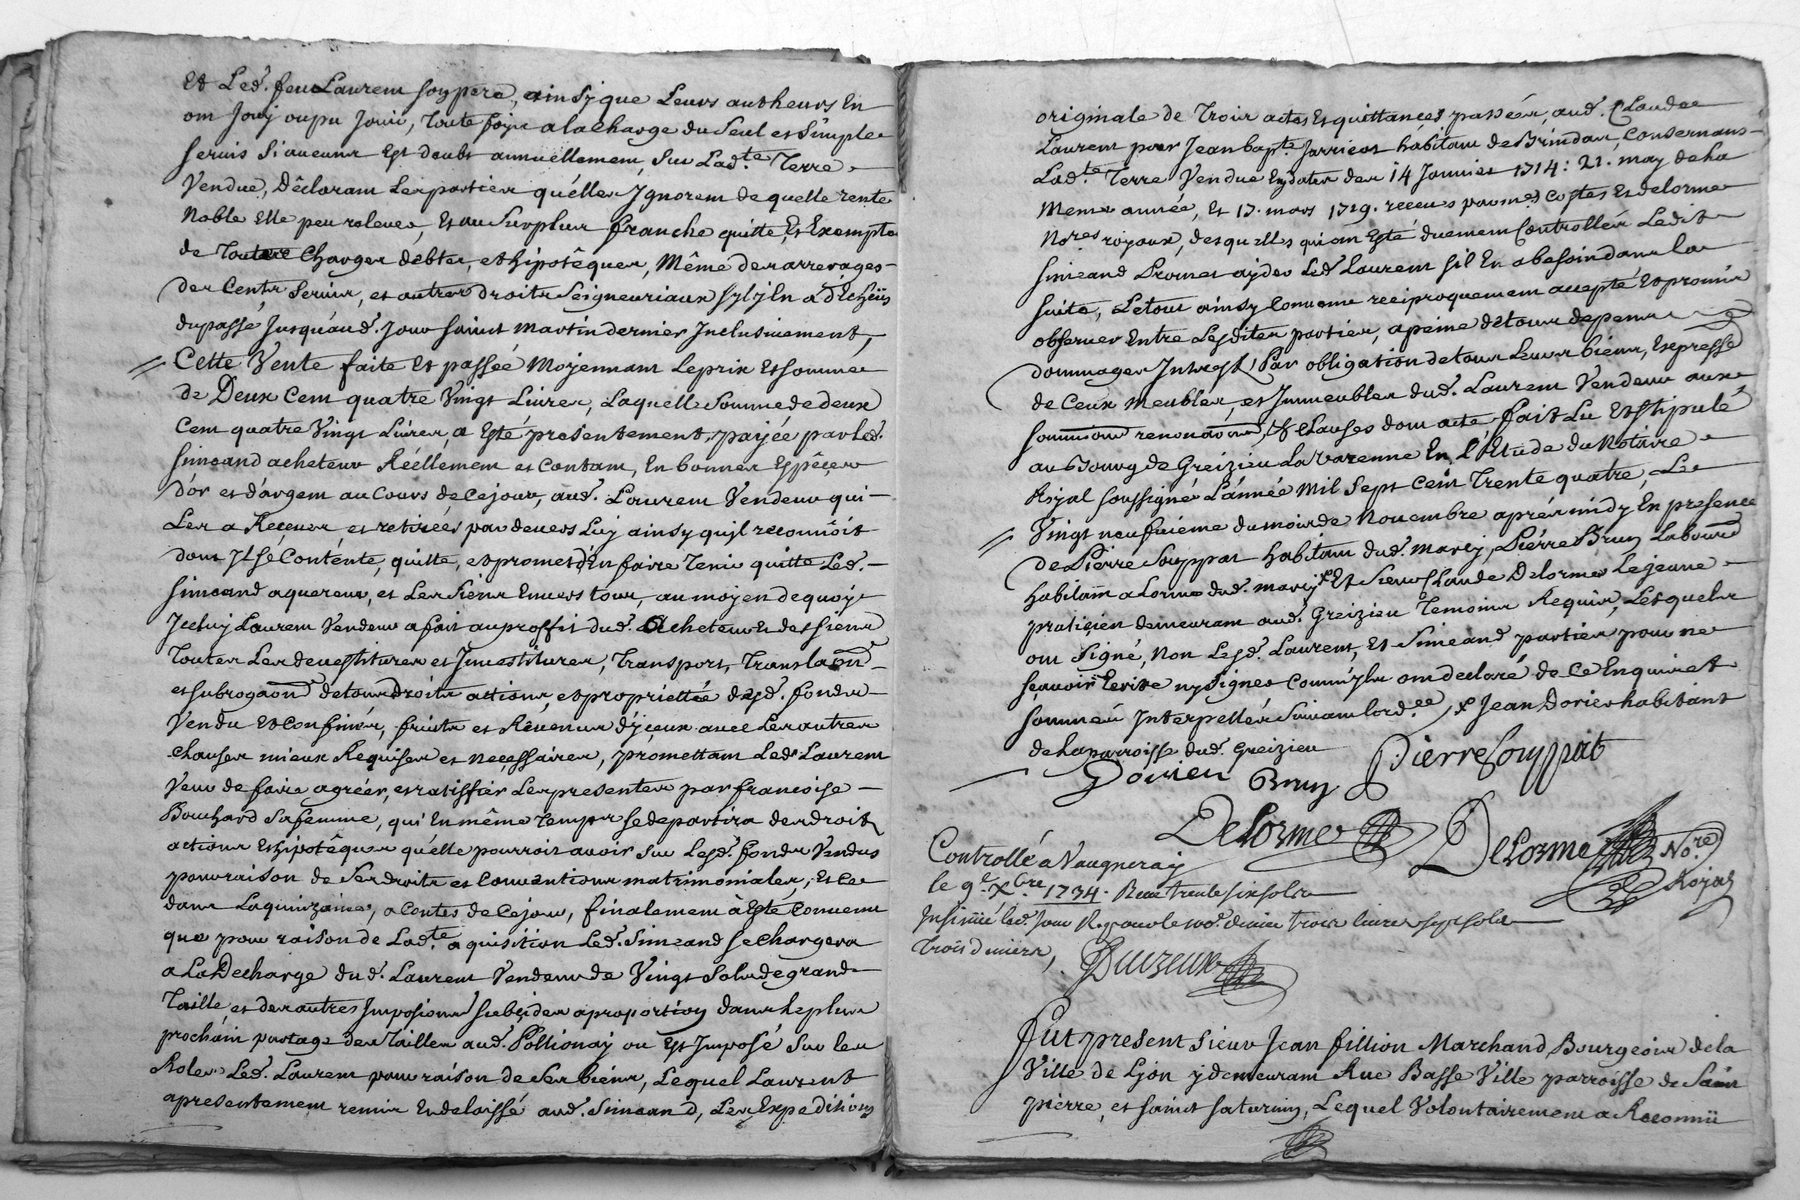 Et Led. feu Laurent son pere, ainsy que Leurs autheurs En
ont Jouy ou pu Jouir, Toute fois a la charge du Seul et simple
servis si aucuns Est deubt annuellement, sur Lad.te Terre
Vendue, Déclarant Les parties qu'elles Ignorent de quelle rente
Noble Elle peu relever, Et au Surplus franche quitte, Et Exempte
de Toutes Charges debtes, et hipotêques, Même des arrerages
des Cents Servis, et autres droits Seigneuriaux sylyln a d'Echeüs
du passé Jusqu'aud. Jour saint Martin dernier Inclusivement,
Cette Vente faite Et passée Moyennant Le prix Et somme
de Deux Cent quatre Vingt Livres, Laquelle Somme de deux
Cent quatre Vingt Livres, a Esté presentement, payée par led.
simeand acheteur Réellement et Contant, En bonnes Espêces
d'or et d'argent au Cours de ce jour, aud. Laurent Vendeur qui
Les a Reçeues et retirées par devers Luy ainsy qu'jl reconnôit
dont Jl se Contente, quitte, et promet d'En faire Tenir quitte Led.
simeand aquereur, et Les Siens Envers tous, au moyen de quoy
Jceluy Laurent Vendeur a fait au proffit dud. Acheteur Et des siens
Toutes Les devestitures et Jnvestitures, Transport, Translaon
et subrogaon de tous Droits actions, et proprietée desd. fonds
Vendu Et Confinés, fruits et Revenus d'jceux avec Les autres
clauses mieux Requises et neçessaires, promettant Led. Laurent
Veur de faire agréer, et ratiffier Les presentes par francoise
Bouchard Sa femme, qui En même Temps se departira des droits
actions Et hipotêques qu'elle pourroit avoir Sur Lesd. fonds Vendus
pour raison de Ses droits et Conventions matrimoniales, Et Ce
dans La quinzaine, a Contes de Ce jour, finalement a Esté Convenu
que pour raison de Lad.te aquisition Led. Simeand se Chargera
a La Decharge dud. Laurent Vendeur de Vingt Sols de grand
Taille, et des autres Jmposions Subçides a proportion dans le plus
prochain partage des Tailles aud. Pollionay ou Est Jmposé Sur les
Roles Led. Laurent pour raison de Ses biens, Lequel Laurent
a presentement remis Et delaissé aud. Simeand, Les Expeditions
originale de Trois actes Et quittances passées, aud. Claude
Laurent par Jean bapt.e Jarricot habitant de Brindas, Consernans
Lad.te Terre Vendue En dates des 14 Janvier 1714: 21. may de la
Meme année, Et 17. mars 1719. receus par mes Costes Et delorme
No.res royaux, desquelles qui ont Esté duement Controllés Ledit
simeand Promet ayder Led. Laurent sil En a besoin dans la
suite, Le tout ainsy Convenu reciproquement accepté Et promis
observer Entre Lesdites parties, a peine de tous depens
dommages Interest, Par obligation de tous Leurs biens, Expressé
de Ceux meubles, et Jmmeubles dud. Laurent Vendeur aux
soumissions renonciaons, & Clauses dont acte fait Lu Et Stipulé
au Bourg de Greizieu La Varenne En l'Etude du Notaire
Royal soussigné L'année Mil Sept Cent Trente quatre, Le
Vingt neufvieme du mois de Novembre aprés midy En presence
de Pierre Souppat habitant dud. marcy, Piérre Brun Laboureur
habitant a Lorme dud. marcy x Et Sieur Claude Delorme Lejeune
pratiçien demeurant aud. Greizieu Temoins Requis, Lesquels
ont Signé, Non Lesd. Laurent, Et Simeand parties pour ne
sçavoir Ecrire ny Signer Comm'jls ont declaré de Ce Enquis Et
sommés Jnterpellés Suivant lord.ce x Jean Dorier habitant
de la parroisse dud. Greizieu
Dorier Brun Pierre Souppat
Delorme Delorme No.re Royal
Controllé a Vaugneray
le 9.e Xbre 1734. Reçu trente six sols
Insinué led. Jour R. pour le 100.e denier trois livres sept sols
trois deniers,
Fut present Sieur Jean fillion Marchand Bourgeois de la
Ville de Lyon y demeurant Rue Basse Ville parroisse de Saint
pierre, et saint saturnin, Lequel Volontairement a Reconnü